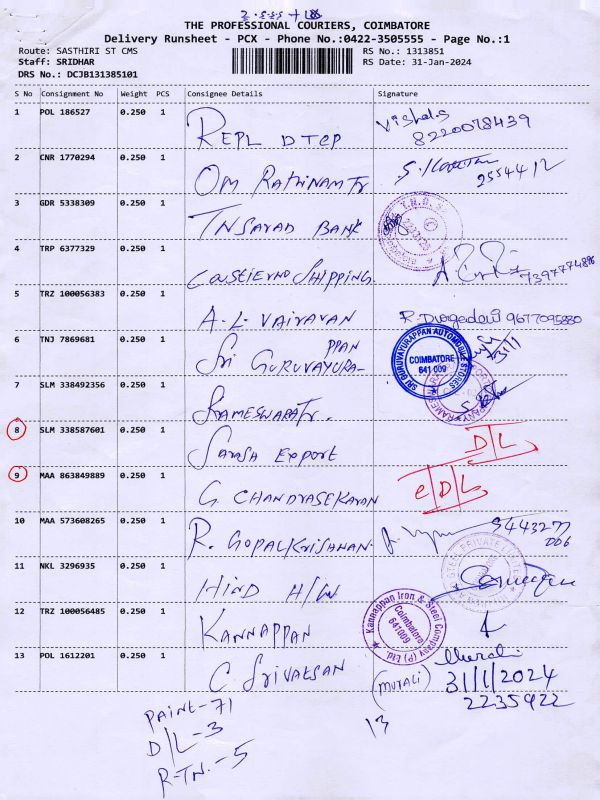 THE PROFESSIONAL COURIERS, COIMBATORE
Delivery Runsheet - PCX - Phone No.:0422-3505555 - Page No.:1
Route: SASTHIRI ST CMS
Staff: SRIDHAR
DRS No.: DCJB131385101
RS No.: 1313851
RS Date: 31-Jan-2024
S No Consignment No Weight PCS Consignee Details Signature
1 POL 186527 0.250 1 REPL DTCP Vishal.S
8220078439
2 CNR 1770294 0.250 1 OM RATHINAM Tr
2554412
3 GDR 5338309 0.250 1 TNSARAD BANK
4 TRP 6377329 0.250 1 SHIPPING
5 TRZ 100056383 0.250 1 A.L. VAIRAVAN 9677095880
6 TNJ 7869681 0.250 1 SRI GURUVAYURAPPAN
SRI GURUVAYURAPPAN AUTOMOBILE STORES
COIMBATORE
641 009
7 SLM 338492356 0.250 1 RAMESWARA Tr.
8 SLM 338587601 0.250 1 SAMSA EXPORT D/L
9 MAA 863849889 0.250 1 G. CHANDRASEKARAN D/L
10 MAA 573608265 0.250 1 R. GOPALKRISHNAN.
11 NKL 3296935 0.250 1 HIND H/W
12 TRZ 100056485 0.250 1 KANNAPPAN
Kannappan Iron & Steel Company (P) Ltd.
Coimbatore
641009
13 POL 1612201 0.250 1 C SRIVATSAN
(MURALI) 31/1/2024
2235922
13
PAINT-71
D/L-3
R-TN.-5